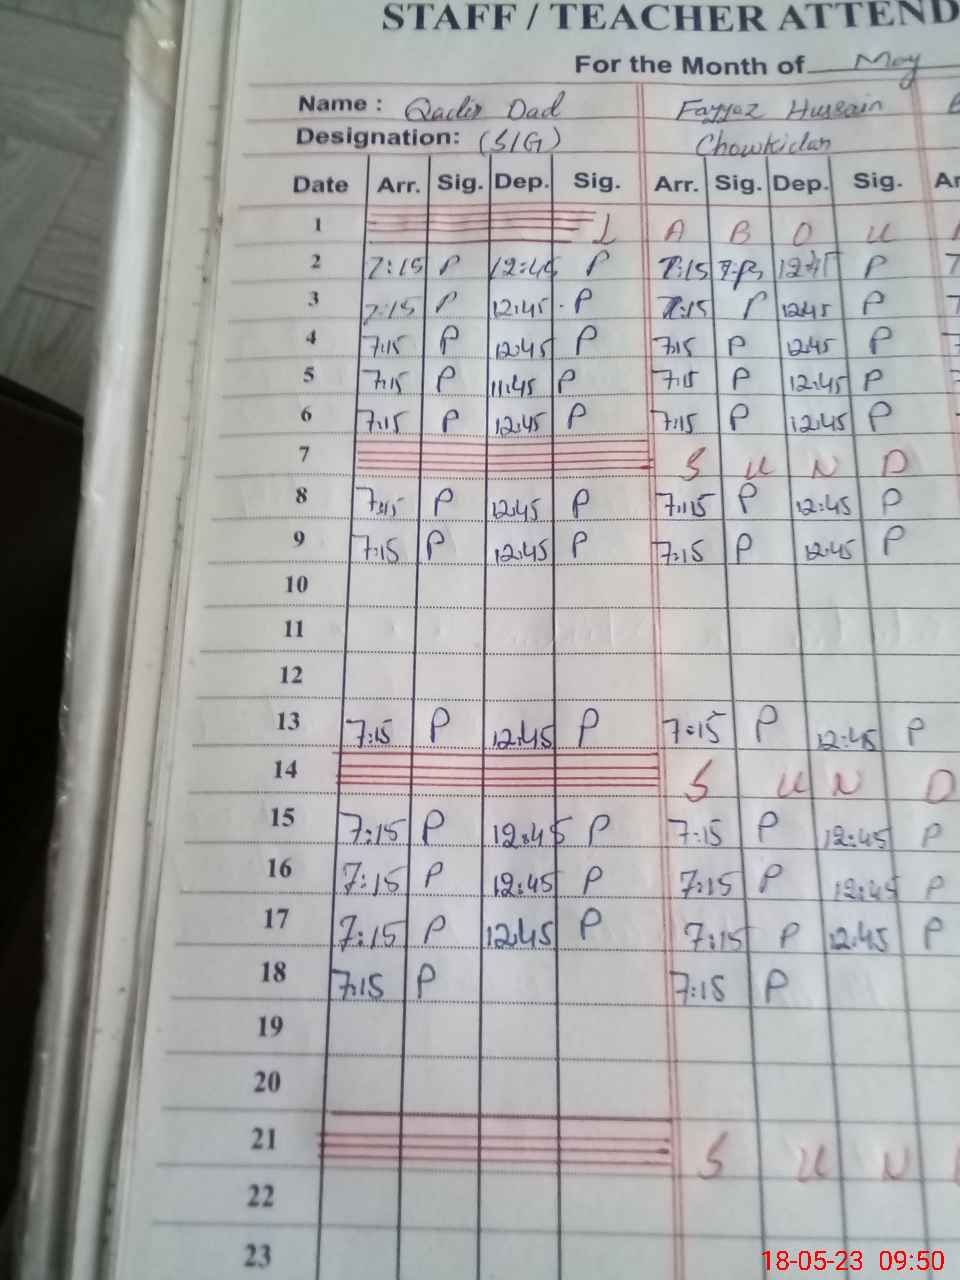 STAFF / TEACHER ATTEND
For the Month of May
Name : Qadir Dad Fayyaz Hussain
Designation: (S/G) Chowkidar
Date Arr. Sig. Dep. Sig. Arr. Sig. Dep. Sig. Ar
1 L A B O U
2 7:15 P 12:45 P 7:15 P 12:45 P 7
3 7:15 P 12:45 P 7:15 P 12:45 P 7
4 7:15 P 12:45 P 7:15 P 12:45 P 7
5 7:15 P 11:45 P 7:15 P 12:45 P
6 7:15 P 12:45 P 7:15 P 12:45 P
7 S U N D
8 7:15 P 12:45 P 7:15 P 12:45 P
9 7:15 P 12:45 P 7:15 P 12:45 P
10
11
12
13 7:15 P 12:45 P 7:15 P 12:45 P
14 S U N D
15 7:15 P 12:45 P 7:15 P 12:45 P
16 7:15 P 12:45 P 7:15 P 12:45 P
17 7:15 P 12:45 P 7:15 P 12:45 P
18 7:15 P 7:15 P
19
20
21 S U N
22
23
18-05-23 09:50